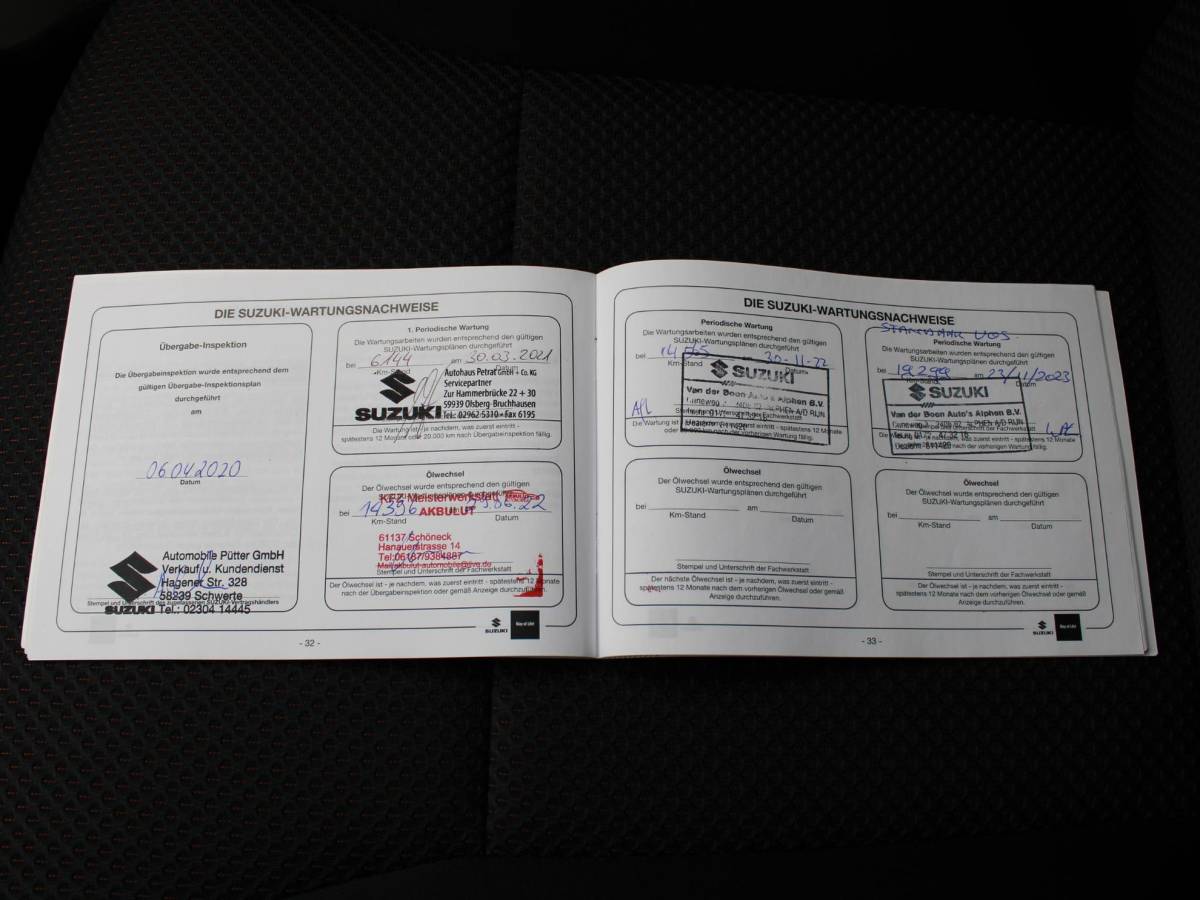 DIE SUZUKI-WARTUNGSNACHWEISE
Übergabe-Inspektion
Die Übergabeinspektion wurde entsprechend dem
gültigen Übergabe-Inspektionsplan
durchgeführt
am
06.04.2020
Datum
Automobile Pütter GmbH
Verkauf u. Kundendienst
Hagener Str. 328
58239 Schwerte
Stempel und Unterschrift des zugelassenen SUZUKI-Vertragshändlers
SUZUKI Tel.: 02304 14445
1. Periodische Wartung
Die Wartungsarbeiten wurden entsprechend den gültigen
SUZUKI-Wartungsplänen durchgeführt
bei 6144 am 30.03.2021
Km-Stand Datum
SUZUKI
Autohaus Petrat GmbH + Co. KG
Servicepartner
Zur Hammerbrücke 22 + 30
59939 Olsberg-Bruchhausen
Tel.: 02962-5310 • Fax 6195
Die Wartung ist - je nachdem, was zuerst eintritt -
spätestens 12 Monate oder 20.000 km nach Übergabeinspektion fällig.
Ölwechsel
Der Ölwechsel wurde entsprechend den gültigen
SUZUKI-Wartungsplänen durchgeführt
KFZ Meisterwerkstatt
AKBULUT
bei 14396 am .06.22
Km-Stand Datum
61137 Schöneck
Hanauerstrasse 14
Tel:06187/9384887
Mail:akbulut-automobile@live.de
Stempel und Unterschrift der Fachwerkstatt
Der Ölwechsel ist - je nachdem, was zuerst eintritt - spätestens 12 Monate
nach der Übergabeinspektion oder gemäß Anzeige durchzuführen.
SUZUKI
Way of Life!
- 32 -
DIE SUZUKI-WARTUNGSNACHWEISE
Periodische Wartung
Die Wartungsarbeiten wurden entsprechend den gültigen
SUZUKI-Wartungsplänen durchgeführt
bei am 30-11-22
Km-Stand Datum
SUZUKI
Van der Boon Auto's Alphen B.V.
ALPHEN A/D RIJN
Stempel und Unterschrift der Fachwerkstatt
Die Wartung ist - je nachdem, was zuerst eintritt - spätestens 12 Monate
oder 20.000 km nach der vorherigen Wartung fällig.
Periodische Wartung
Die Wartungsarbeiten wurden entsprechend den gültigen
SUZUKI-Wartungsplänen durchgeführt
bei 19.299 am 23/11/2023
Km-Stand Datum
SUZUKI
Van der Boon Auto's Alphen B.V.
ALPHEN A/D RIJN
Stempel und Unterschrift der Fachwerkstatt
Die Wartung ist - je nachdem, was zuerst eintritt - spätestens 12 Monate
nach der vorherigen Wartung fällig.
Ölwechsel
Der Ölwechsel wurde entsprechend den gültigen
SUZUKI-Wartungsplänen durchgeführt
bei am
Km-Stand Datum
Stempel und Unterschrift der Fachwerkstatt
Der nächste Ölwechsel ist - je nachdem, was zuerst eintritt -
spätestens 12 Monate nach dem vorherigen Ölwechsel oder gemäß
Anzeige durchzuführen.
Ölwechsel
Der Ölwechsel wurde entsprechend den gültigen
SUZUKI-Wartungsplänen durchgeführt
bei am
Km-Stand Datum
Stempel und Unterschrift der Fachwerkstatt
Der nächste Ölwechsel ist - je nachdem, was zuerst eintritt -
spätestens 12 Monate nach dem vorherigen Ölwechsel oder gemäß
Anzeige durchzuführen.
SUZUKI
Way of Life!
- 33 -